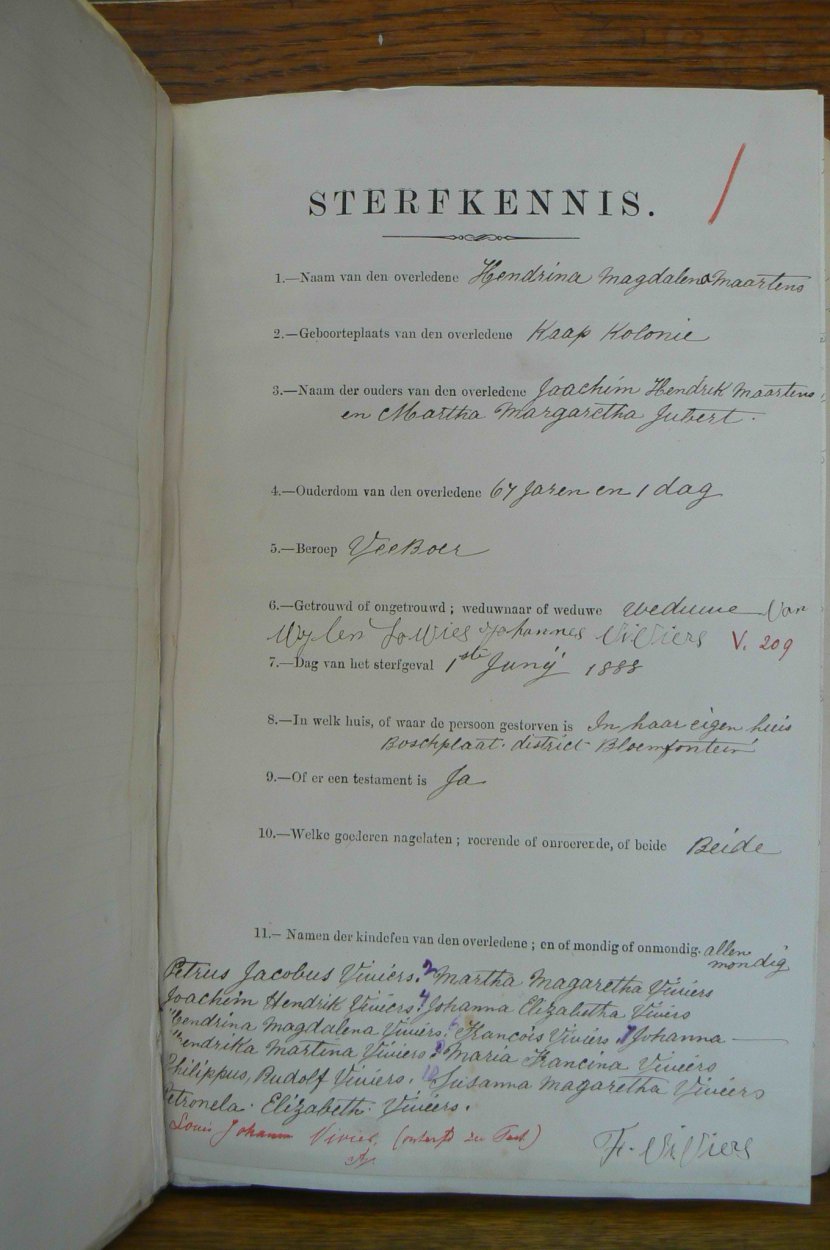 STERFKENNIS.
1.—Naam van den overledene Hendrina Magdalena Maartens
2.—Geboorteplaats van den overledene Kaap Kolonie
3.—Naam der ouders van den overledene Joachim Hendrik Maartens
en Martha Margaretha Jubert.
4.—Ouderdom van den overledene 67 Jaren en 1 dag
5.—Beroep VeeBoer
6.—Getrouwd of ongetrouwd; weduwnaar of weduwe weduwe Van
Wylen Lowies Johannes ViViers V. 209
7.—Dag van het sterfgeval 1ste Junij 1888
8.—In welk huis, of waar de persoon gestorven is In haar eigen huis
Boschplaat. district Bloemfontein
9.—Of er een testament is Ja
10.—Welke goederen nagelaten; roerende of onroerende, of beide Beide
11.—Namen der kinderen van den overledene; en of mondig of onmondig. allen
mondig
Petrus Jacobus Viviers. 2 Martha Magaretha Viviers
Joachim Hendrik Viviers. 4 Johanna Elizabetha Viviers
Hendrina Magdalena Viviers. 6 Francois Viviers. 7 Johanna
Hendrika Martina Viviers 8 Maria Francina Viviers
Philippus, Rudolf Viviers. 10 Susanna Magaretha Viviers
Petronela. Elizabeth. Viviers.
Louis Johannes Vivier,
F. ViViers